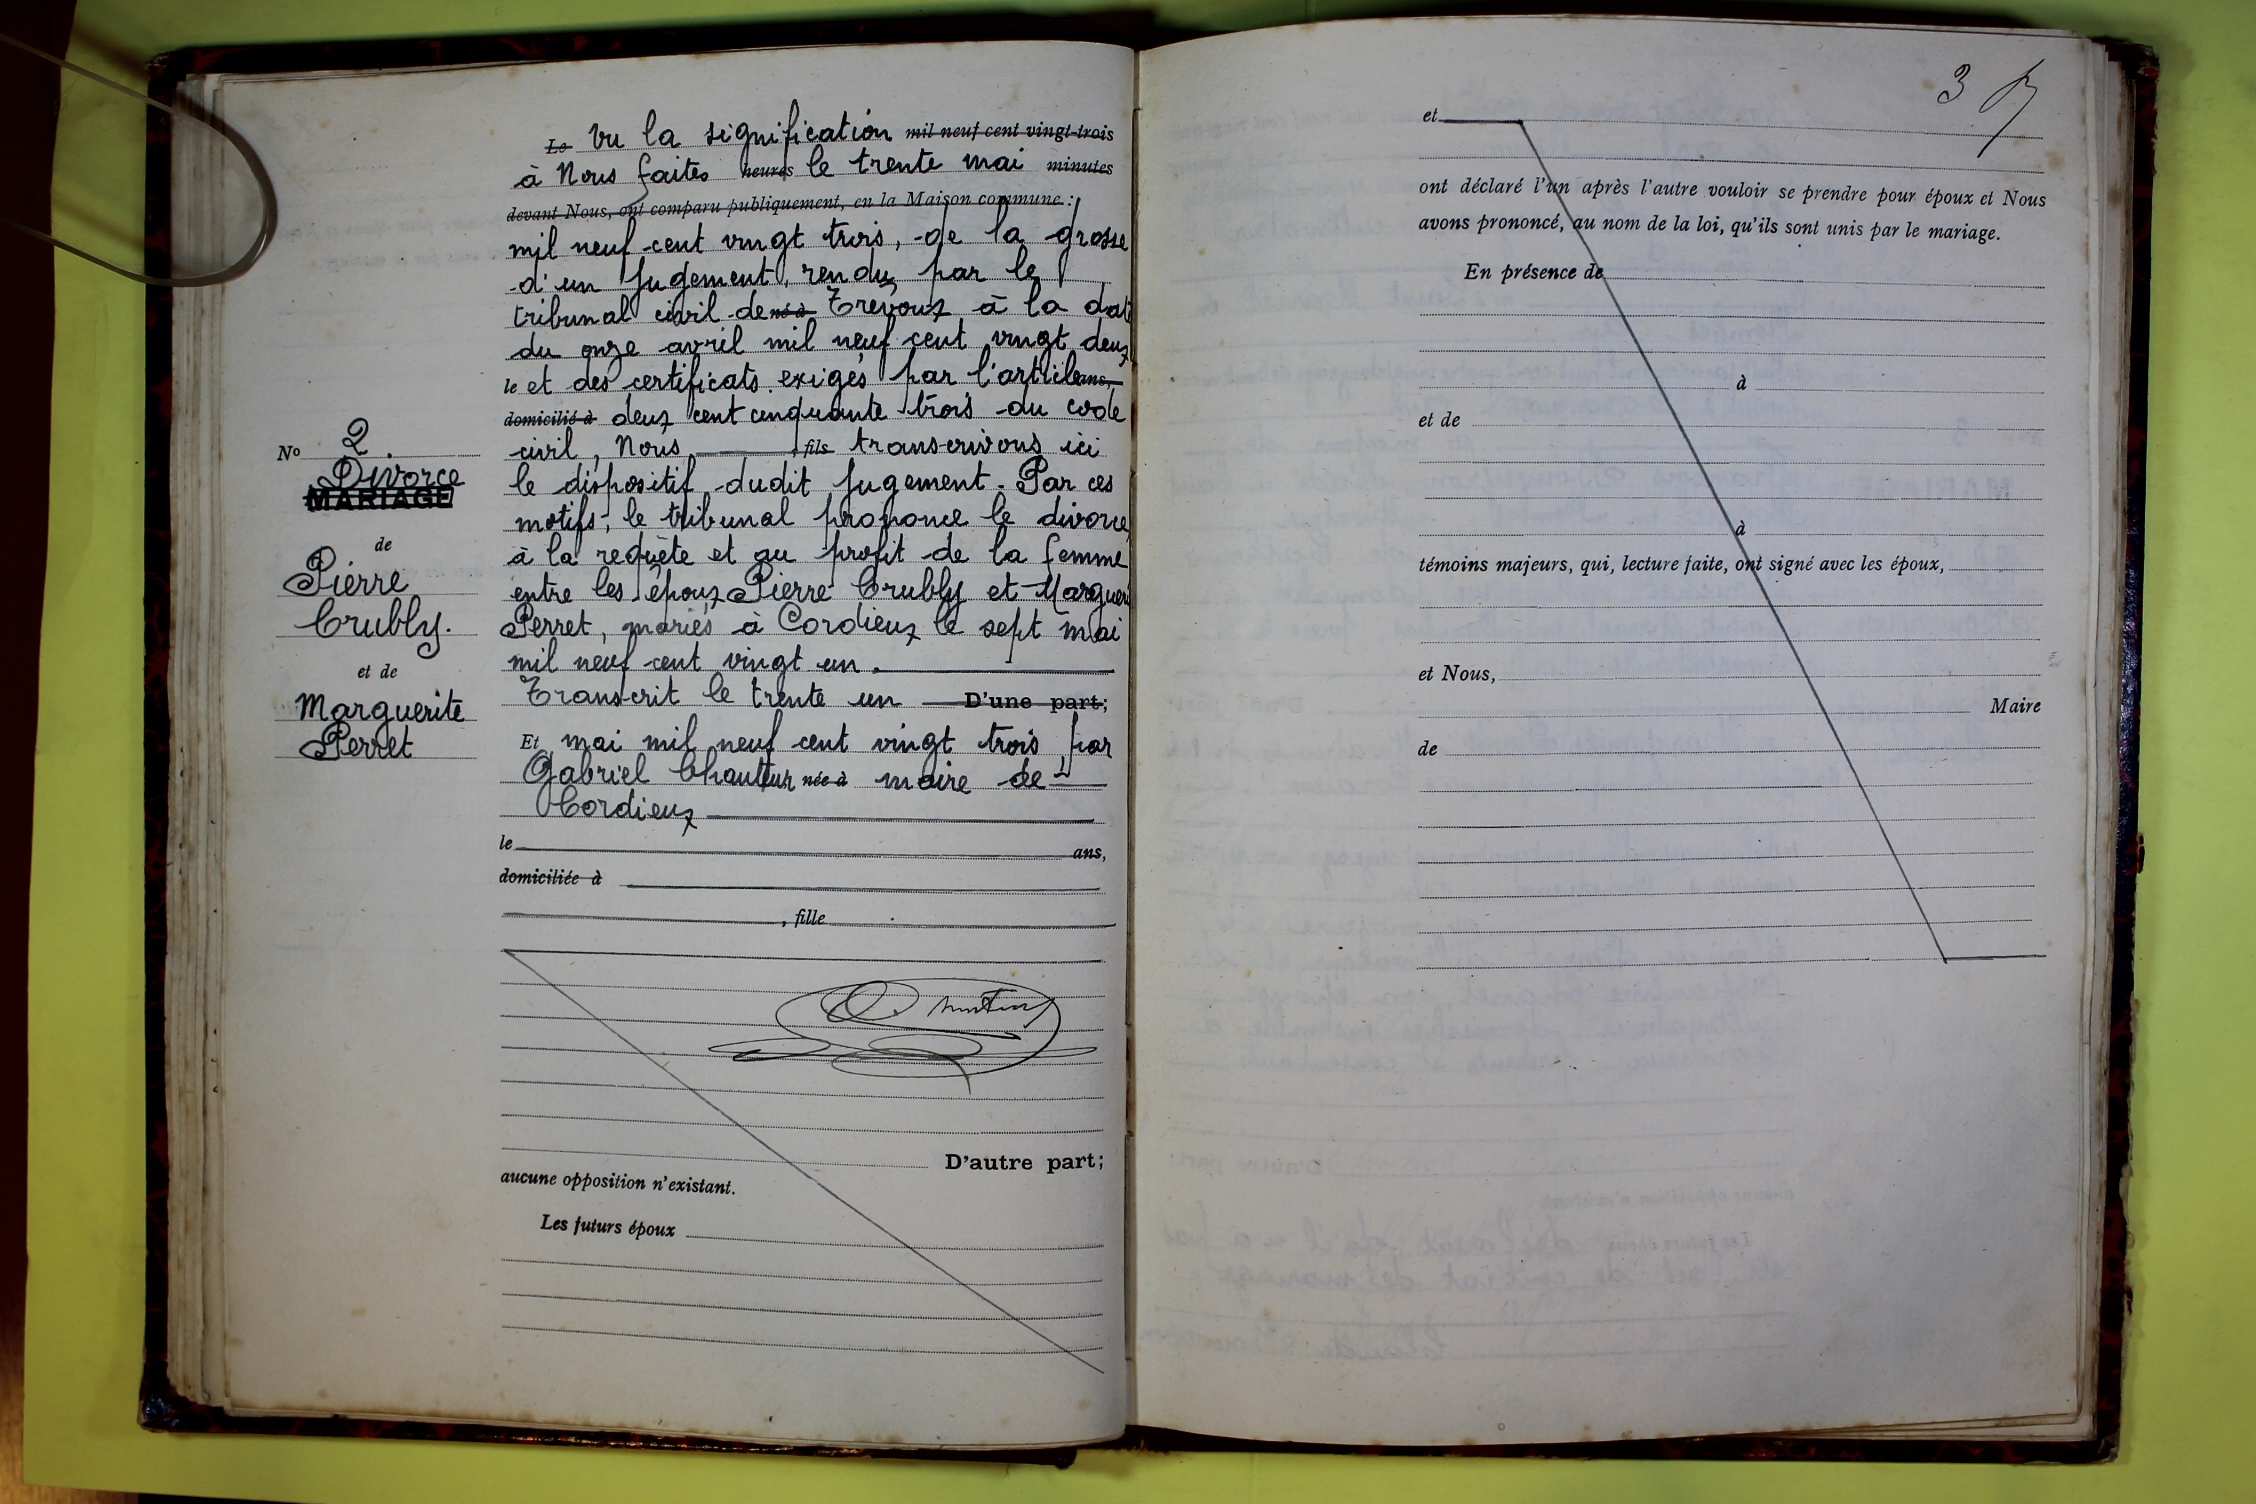 Le Vu la signification mil neuf cent vingt-trois
à Nous faites heures le trente mai minutes
devant Nous, ont comparu publiquement, en la Maison commune :
mil neuf cent vingt trois, de la grosse
d'un jugement, rendu par le
tribunal civil de né à Trévoux à la dat
du onze avril mil neuf cent vingt deux
le et des certificats exigés par l'article ans,
domicilié à deux cent cinquante trois du code
civil, Nous , fils transcrivons ici
le dispositif dudit jugement. Par ces
motifs, le tribunal prononce le divorce
à la requête et au profit de la femme
entre les époux Pierre Crubly et Marguer
Perret, mariés à Cordieux le sept mai
mil neuf cent vingt un.
Transcrit le trente un D'une part;
Et mai mil neuf cent vingt trois par
Gabriel Chanteur née à maire de
Cordieux
le ans,
domiciliée à
, fille
D'autre part;
aucune opposition n'existant.
Les futurs époux
No 2.
Divorce
MARIAGE
de
Pierre
Crubly.
et de
Marguerite
Perret
3
et
ont déclaré l'un après l'autre vouloir se prendre pour époux et Nous
avons prononcé, au nom de la loi, qu'ils sont unis par le mariage.
En présence de
à
et de
à
témoins majeurs, qui, lecture faite, ont signé avec les époux,
et Nous,
Maire
de